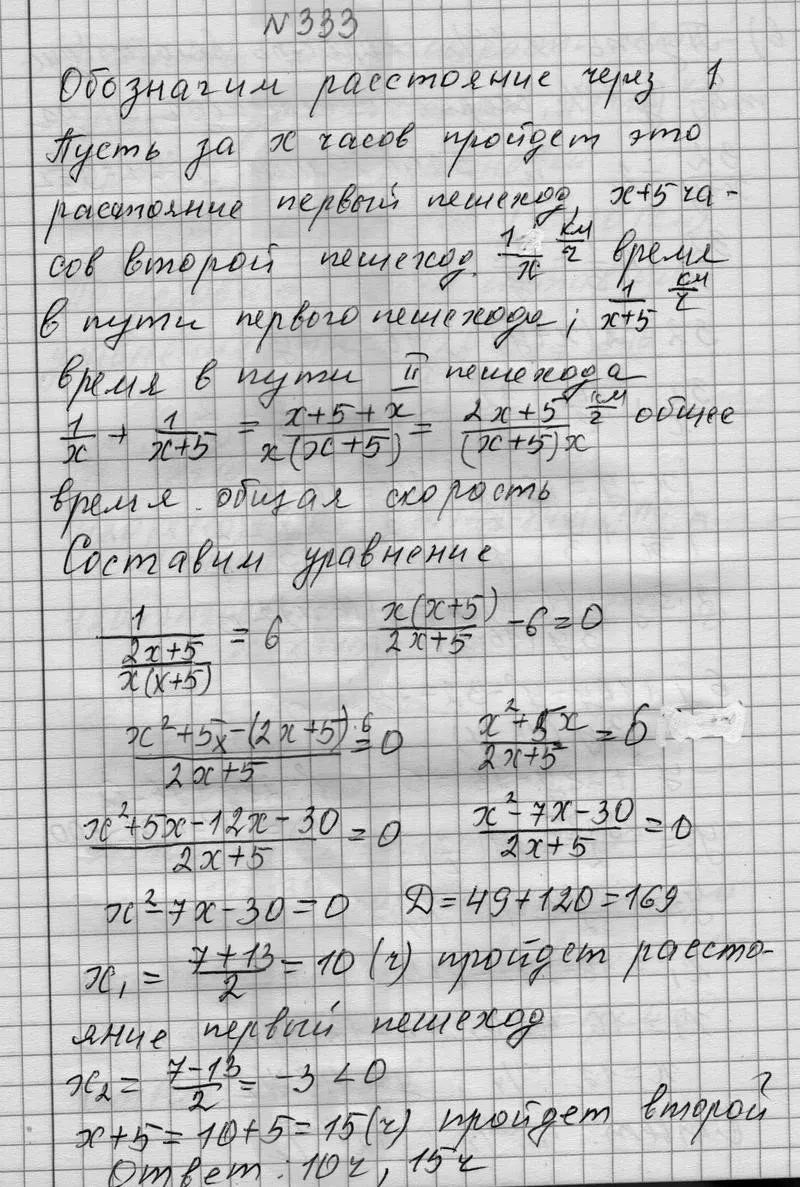 N 333
Обозначим расстояние через 1
Пусть за x часов пройдет это
расстояние первый пешеход, x+5 ча-
сов второй пешеход. 1/x км/ч время
в пути первого пешехода; 1/(x+5) км/ч
время в пути II пешехода
1/x + 1/(x+5) = (x+5+x)/(x(x+5)) = (2x+5)/((x+5)x) км/ч общее
время. общая скорость
Составим уравнение
1/((2x+5)/(x(x+5))) = 6 (x(x+5))/(2x+5) - 6 = 0
(x²+5x-(2x+5)·6)/(2x+5) = 0 (x²+5x)/(2x+5) = 6
(x²+5x-12x-30)/(2x+5) = 0 (x²-7x-30)/(2x+5) = 0
x²-7x-30=0 D=49+120=169
x₁ = (7+13)/2 = 10 (ч) пройдет рассто-
яние первый пешеход
x₂ = (7-13)/2 = -3 < 0
x+5=10+5=15(ч) пройдет второй
Ответ: 10ч, 15ч